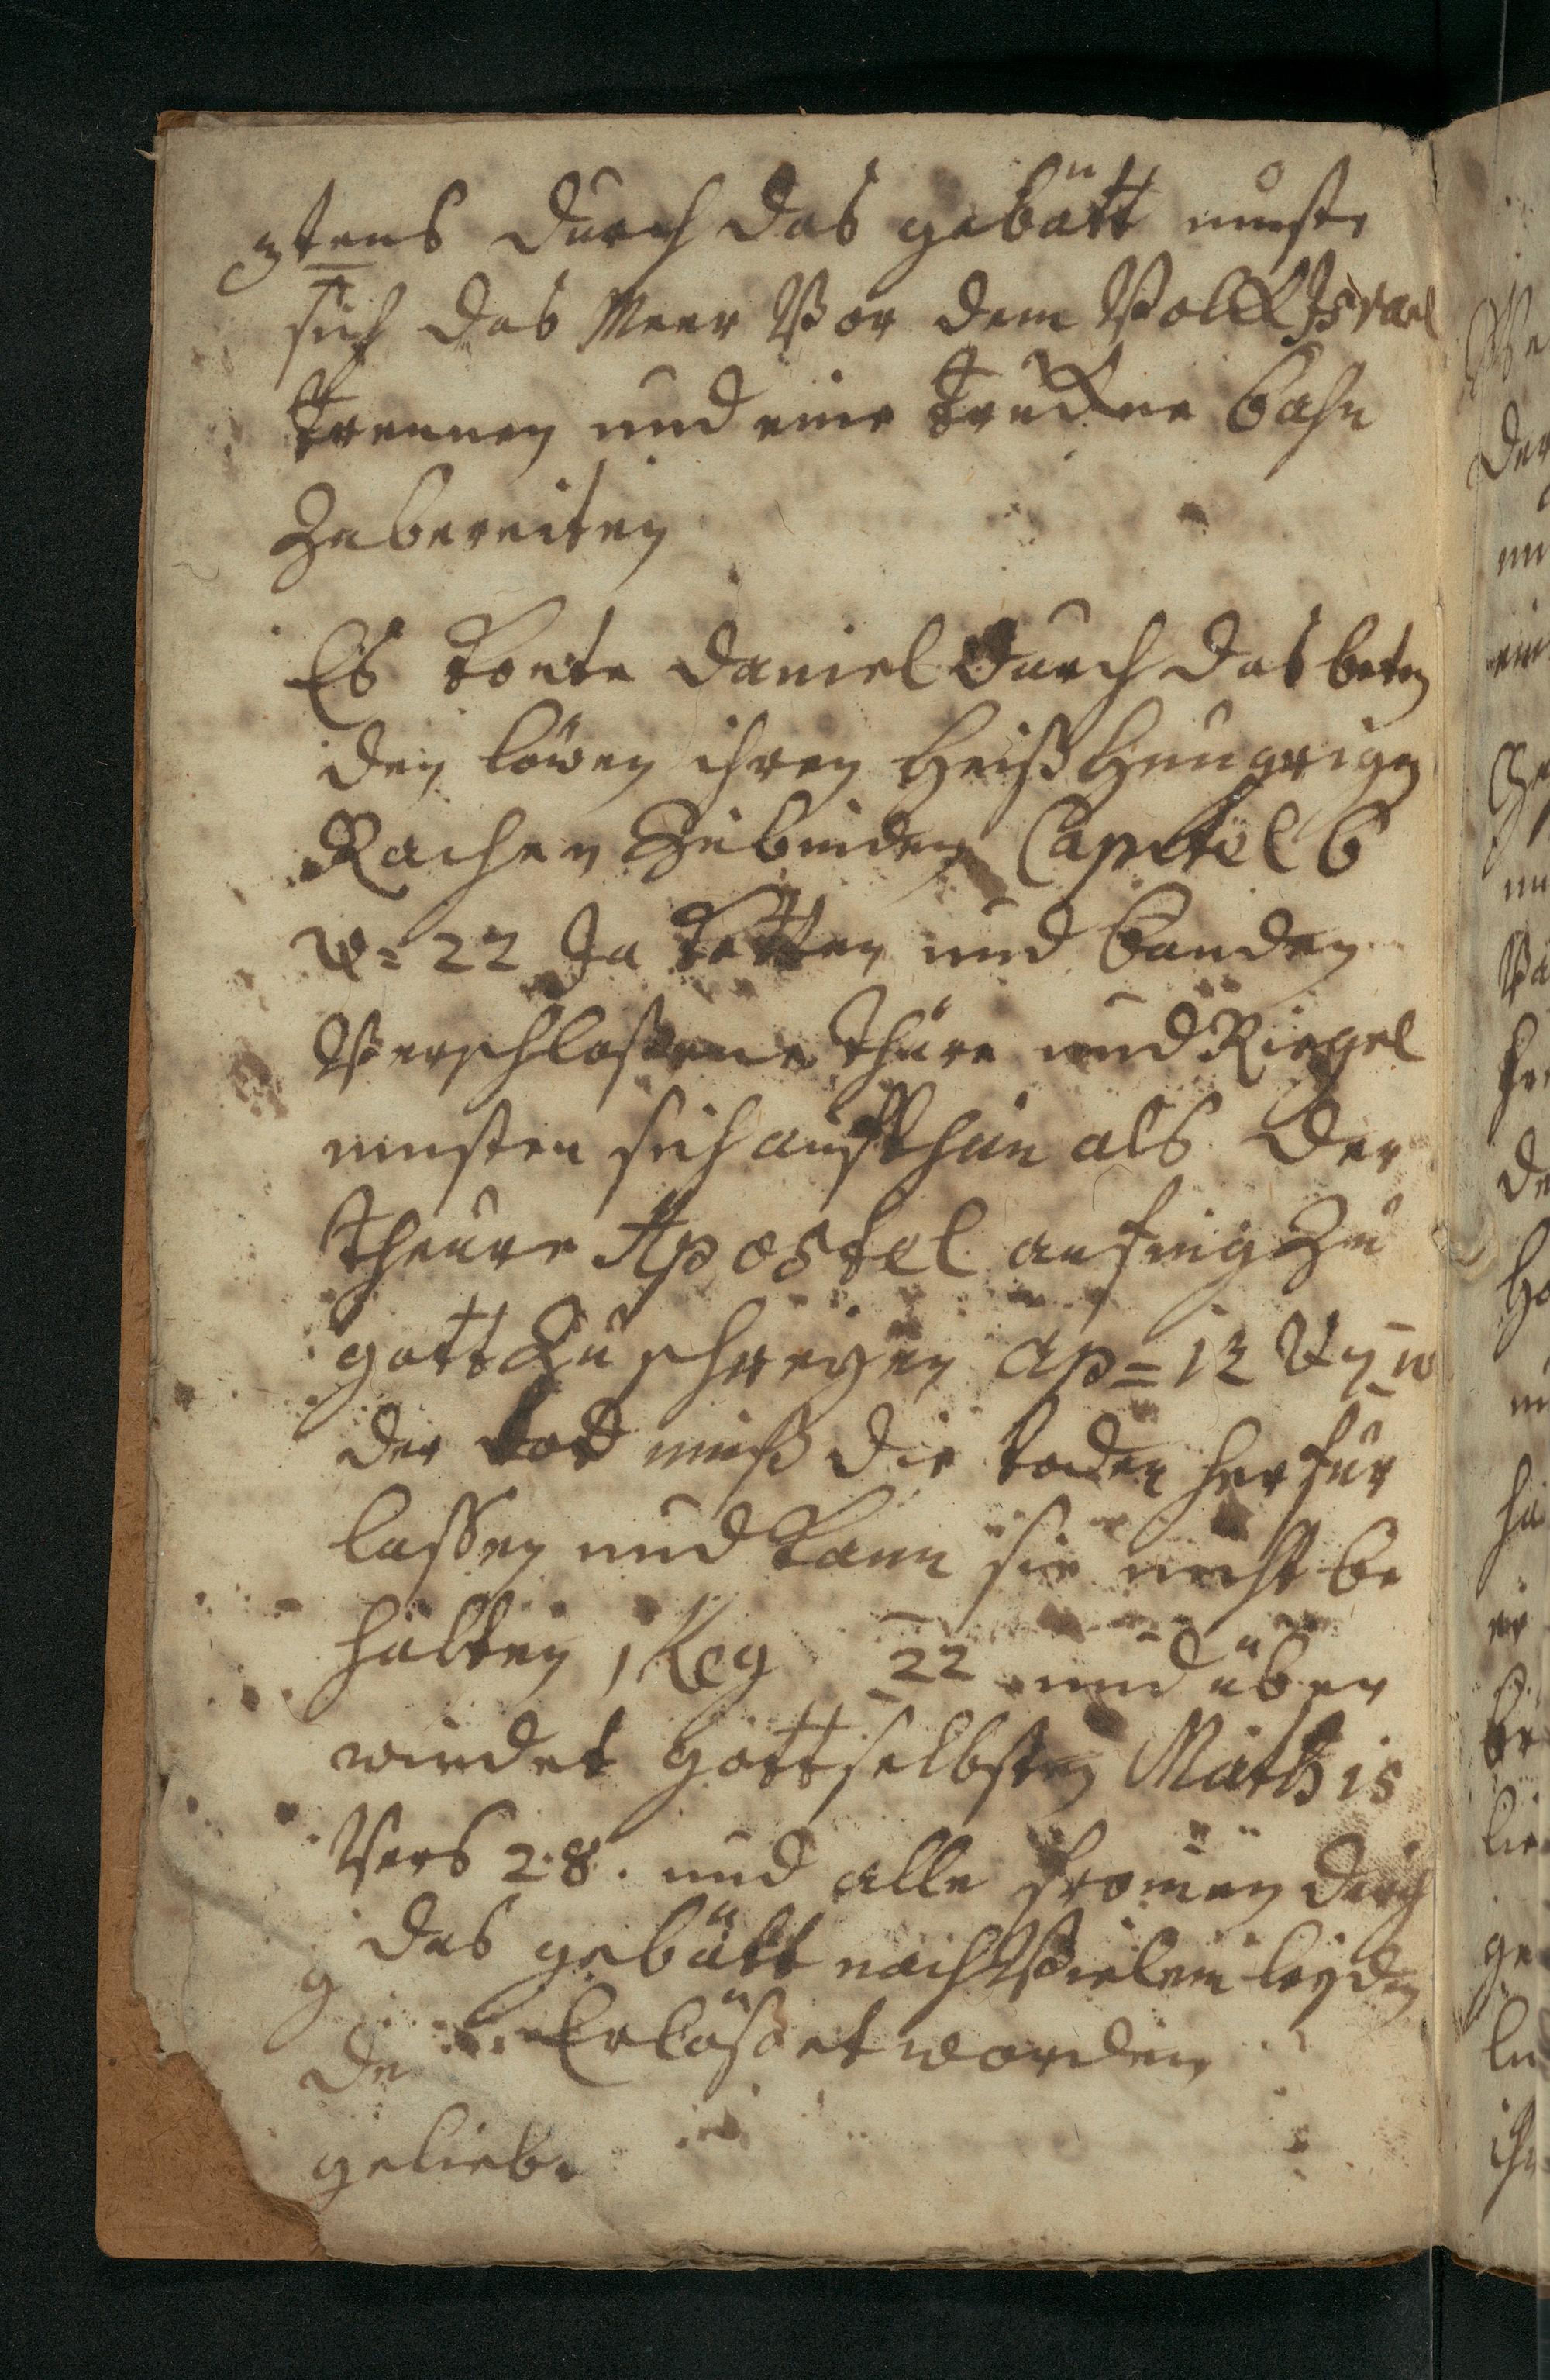 3tens durch das gebätt muste
sich das Meer Vor dem Volck Israel
trennen und eine truckne bahn
Zubereiten
Es konte Daniel durch das beten
den löwen ihren heißhungrigen
Rachen Zubinden Capitel 6
V= 22 Ja ketten und banden
Verschloßene thüre und Riegel
musten sich aufthun als der
theure Apostel anfing Zu
gott Zu schreyen Ap= 12 V 7 10
der tod muß die toden herfür
lassen und kann sie nicht be
halten 1 Reg 22 und über
windet gott selbsten Math 15
Vers 28. und alle fromen durch
das gebätt nach Vielem leyden
g
Erlößet worden
de
geliebe